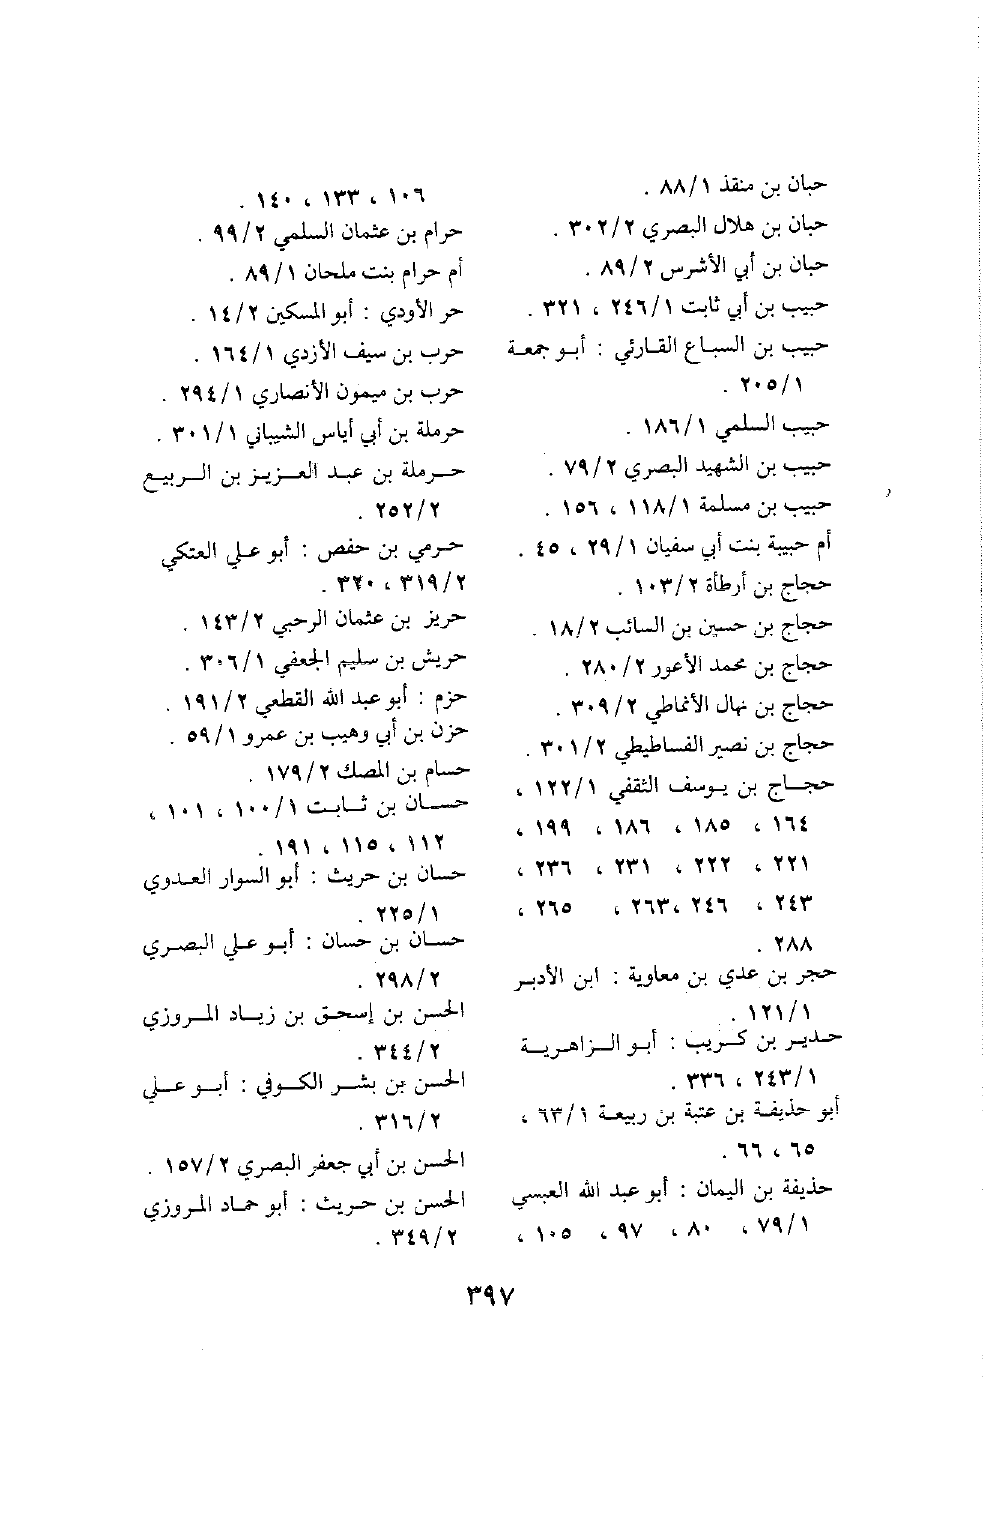 حبان بن منقذ ٨٨/١ .
حبان بن هلال البصري ٣٠٢/٢ .
حبان بن أبي الأشرس ٨٩/٢ .
حبيب بن أبي ثابت ٢٤٦/١ ، ٣٢١ .
حبيب بن السباع القارئي : أبو جمعة
٢٠٥/١ .
حبيب السلمي ١٨٦/١ .
حبيب بن الشهيد البصري ٧٩/٢ .
حبيب بن مسلمة ١١٨/١ ، ١٥٦ .
أم حبيبة بنت أبي سفيان ٢٩/١ ، ٤٥ .
حجاج بن أرطأة ١٠٣/٢ .
حجاج بن حسين بن السائب ١٨/٢ .
حجاج بن محمد الأعور ٢٨٠/٢ .
حجاج بن نهال الأنماطي ٣٠٩/٢ .
حجاج بن نصير الفساطيطي ٣٠١/٢ .
حجاج بن يوسف الثقفي ١٢٢/١ ،
١٦٤ ، ١٨٥ ، ١٨٦ ، ١٩٩ ،
٢٢١ ، ٢٢٢ ، ٢٣١ ، ٢٣٦ ،
٢٤٣ ، ٢٤٦ ،٢٦٣ ، ٢٦٥ ،
٢٨٨ .
حجر بن عدي بن معاوية : ابن الأدبر
١٢١/١ .
حدير بن كريب : أبو الزاهرية
٢٤٣/١ ، ٣٣٦ .
أبو حذيفة بن عتبة بن ربيعة ٦٣/١ ،
٦٥ ، ٦٦ .
حذيفة بن اليمان : أبو عبد الله العبسي
٧٩/١ ، ٨٠ ، ٩٧ ، ١٠٥ ،
١٠٦ ، ١٣٣ ، ١٤٠ .
حرام بن عثمان السلمي ٩٩/٢ .
أم حرام بنت ملحان ٨٩/١ .
حر الأودي : أبو المسكين ١٤/٢ .
حرب بن سيف الأزدي ١٦٤/١ .
حرب بن ميمون الأنصاري ٢٩٤/١ .
حرملة بن أبي أياس الشيباني ٣٠١/١ .
حرملة بن عبد العزيز بن الربيع
٢٥٢/٢ .
حرمي بن حفص : أبو علي العتكي
٣١٩/٢ ، ٣٢٠ .
حريز بن عثمان الرحبي ١٤٣/٢ .
حريش بن سليم الجعفي ٣٠٦/١ .
حزم : أبو عبد الله القطعي ١٩١/٢ .
حزن بن أبي وهيب بن عمرو ٥٩/١ .
حسام بن المصك ١٧٩/٢ .
حسان بن ثابت ١٠٠/١ ، ١٠١ ،
١١٢ ، ١١٥ ، ١٩١ .
حسان بن حريث : أبو السوار العدوي
٢٢٥/١ .
حسان بن حسان : أبو علي البصري
٢٩٨/٢ .
الحسن بن إسحق بن زياد المروزي
٣٤٤/٢ .
الحسن بن بشر الكوفي : أبو علي
٣١٦/٢ .
الحسن بن أبي جعفر البصري ١٥٧/٢ .
الحسن بن حريث : أبو حماد المروزي
٣٤٩/٢ .
٣٩٧